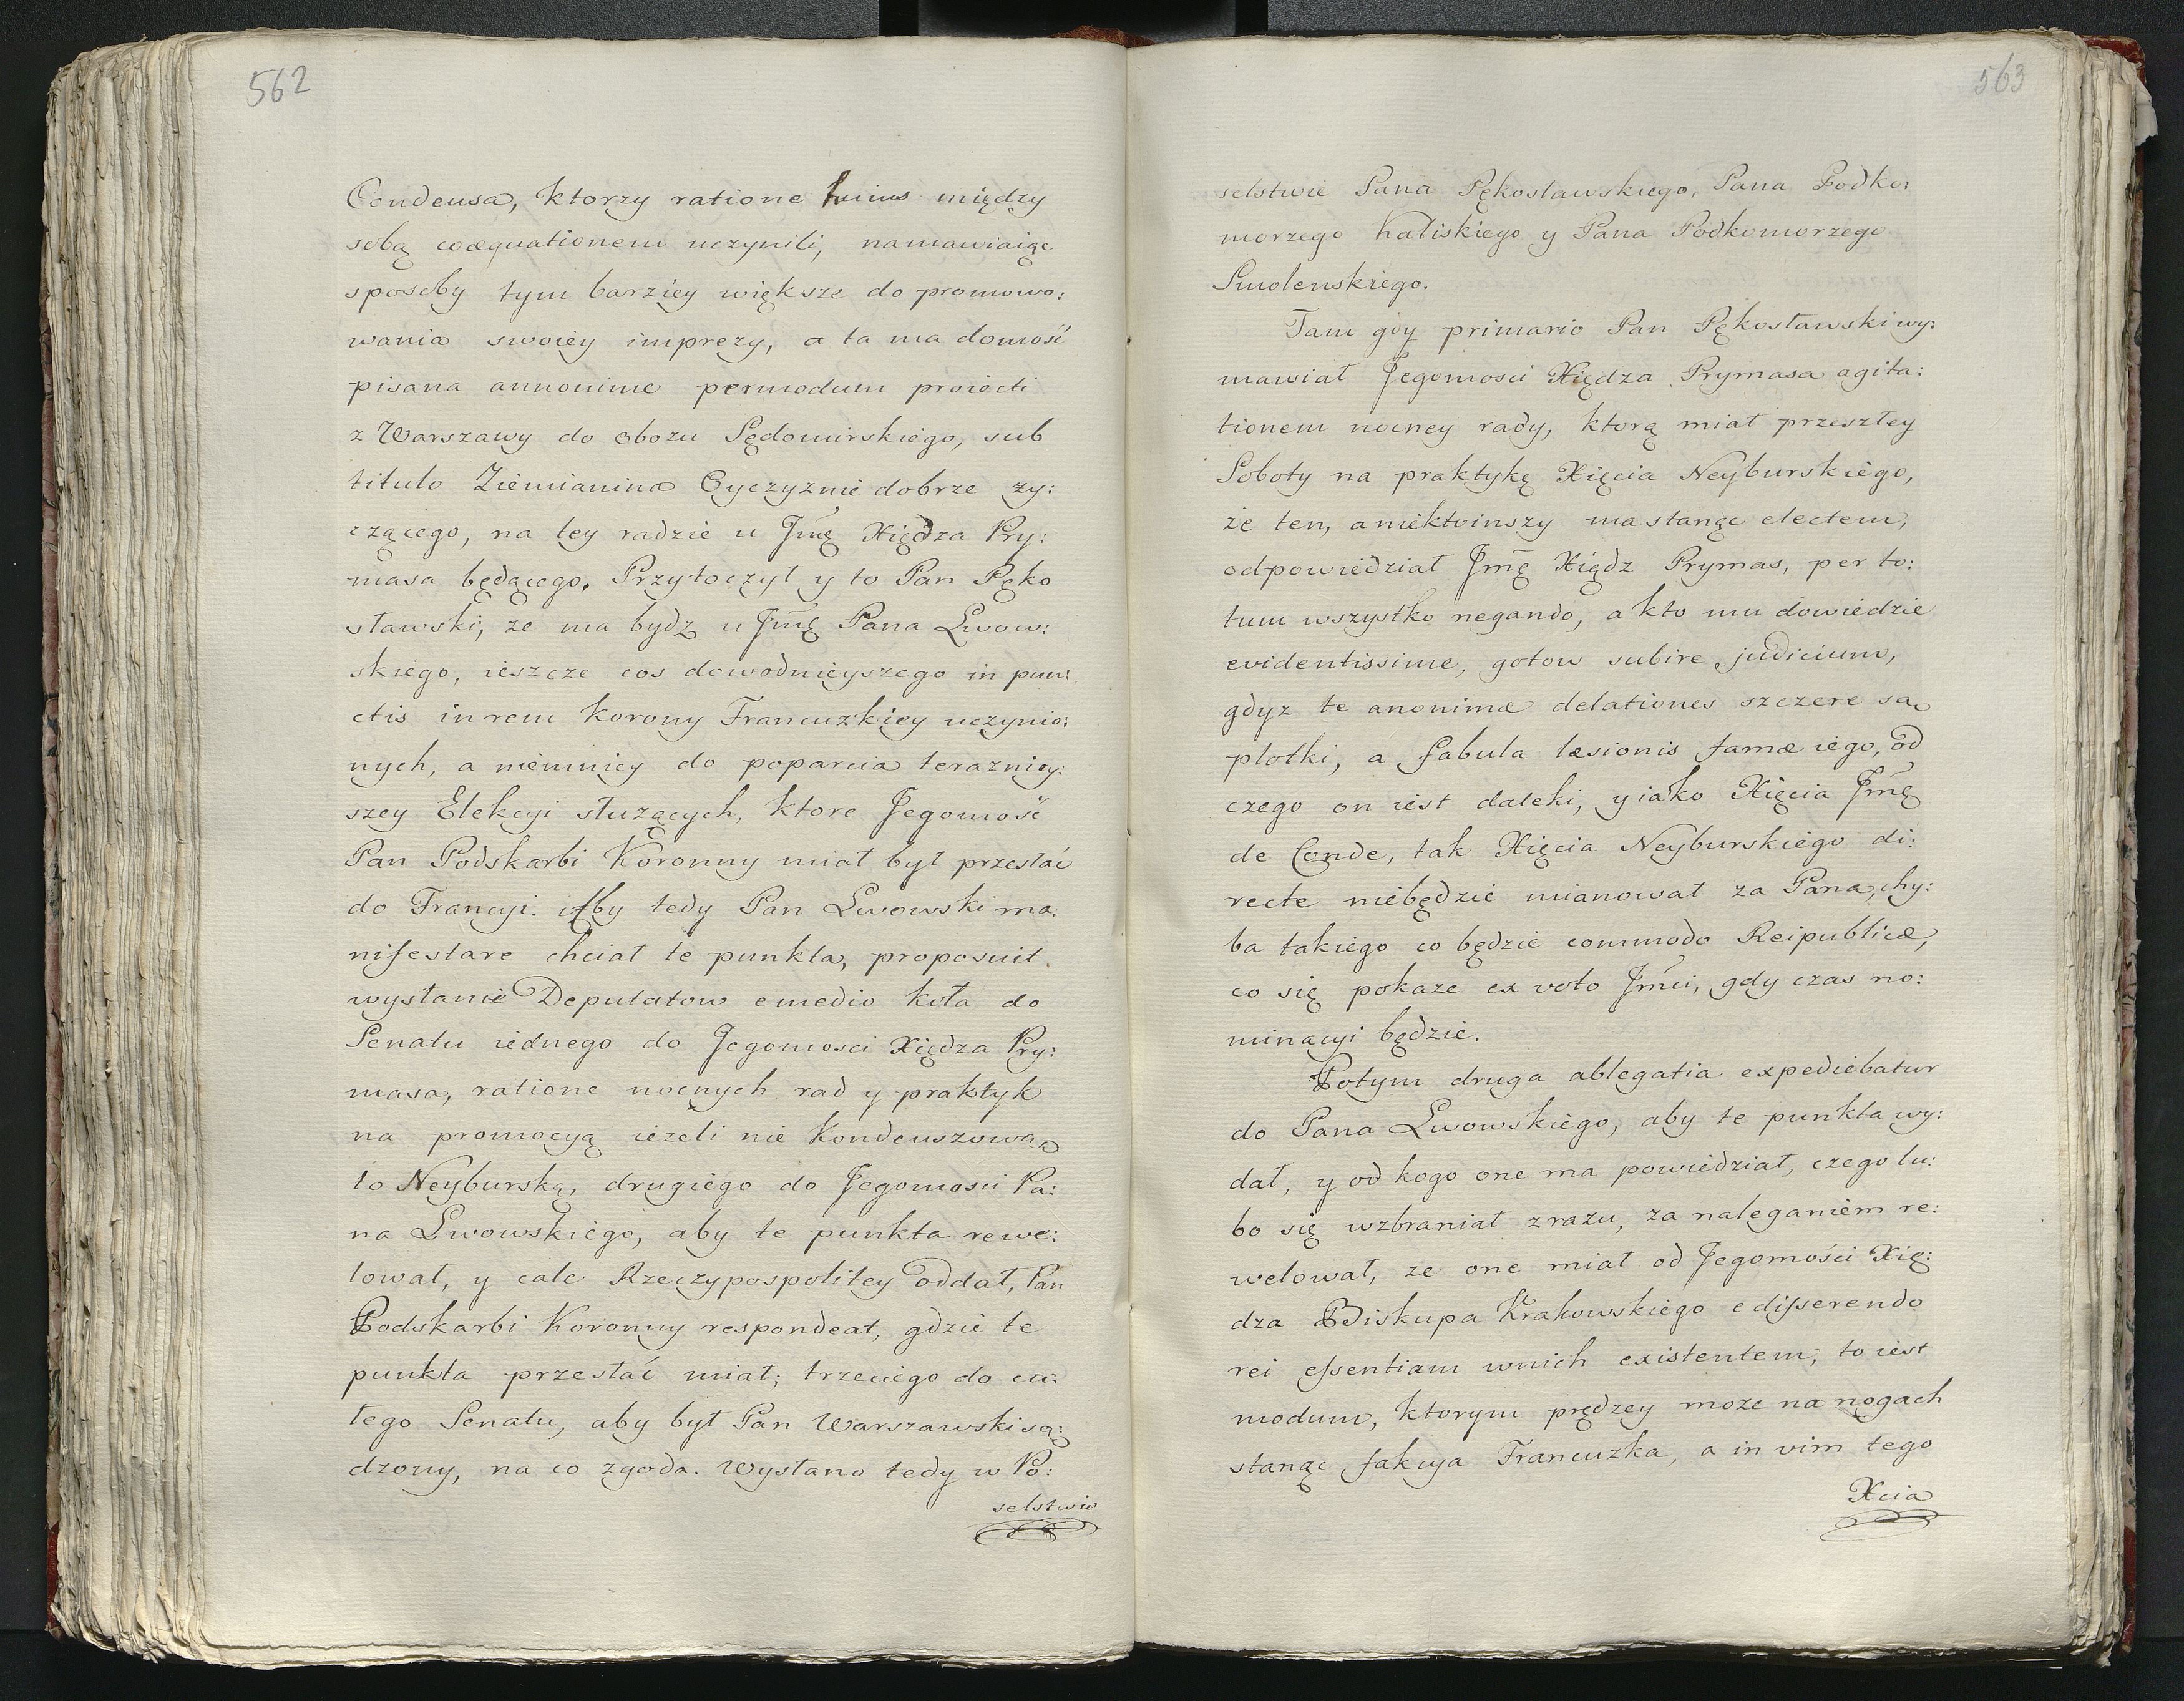 562
Condeusa, ktorzy ratione huius między
sobą coæquationem uczynili, namawiaiąc
sposoby tym barziey większe do promowo:
wania swoiey imprezy, a ta ma domość
pisana annonime permodum proiecti
z Warszawy do obozu Sędomirskiego, sub
titulo Ziemianina Oyczyznie dobrze zy:
czącego, na tey radzie u Jmę Xiędza Pry:
masa będącego. Przytoczył y to Pan Pęko
sławski, że ma bydz u Jmę Pana Lwow:
skiego, ieszcze cos dowodnieyszego in pun:
ctis in rem Korony Francuzkiey uczynio:
nych, a niemniey do poparcia terazniey:
szey Elekcyi służących, ktore Jegomość
Pan Podskarbi Koronny miał był przesłać
do Francyi. Aby tedy Pan Lwowski ma:
nifestare chciał te punkta, proposuit
wysłanie Deputatow e medio koła do
Senatu iednego do Jegomosci Xiędza Pry:
masa, ratione nocnych rad y praktyk
na promocyą ieżeli nie Kondeuszową
to Neyburską, drugiego do Jegomosci Pa:
na Lwowskiego, aby te punkta rewe:
lował, y cale Rzeczypospolitey oddał, Pan
Podskarbi Koronny respondeat, gdzie te
punkta przesłać miał; trzeciego do ca:
łego Senatu, aby był Pan Warszawski są:
dzony, na co zgoda. Wysłano tedy w Po:
selstwie
563
selstwie Pana Pękosławskiego, Pana Podko:
morzego Kaliskiego y Pana Podkomorzego
Smolenskiego.
Tam gdy primario Pan Pękosławski wy:
mawiał Jegomosci Xiędza Prymasa agita:
tionem nocney rady, ktorą miał przeszłey
Soboty na praktykę Xięcia Neyburskiego,
że ten, a niektoinszy ma stanąc electem,
odpowiedział Jmę Xiądz Prymas, per to:
tum wszystko negando, a kto mu dowiedzie
evidentissime, gotow subire judicium,
gdyz te anonimæ delationes szczere są
plotki, a fabula læsionis famæ iego, od
czego on iest daleki, y iako Xięcia Jmę
de Conde, tak Xięcia Neyburskiego di:
recte niebędzie mianował za Pana, chy:
ba takiego co będzie commodo Reipublicæ,
co się pokaze ex voto Jmci, gdy czas no:
minacyi będzie.
Potym druga ablegatia expediebatur
do Pana Lwowskiego, aby te punkta wy:
dał, y od kogo one ma powiedział, czego lu:
bo się wzbraniał zrazu, za naleganiem re:
welował, ze one miał od Jegomości Xię:
dza Biskupa Krakowskiego edisserendo
rei essentiam wnich existentem, to iest
modum, ktorym prędzey moze na nogach
stanąc fakcya Francuzka, a in vim tego
Xcia